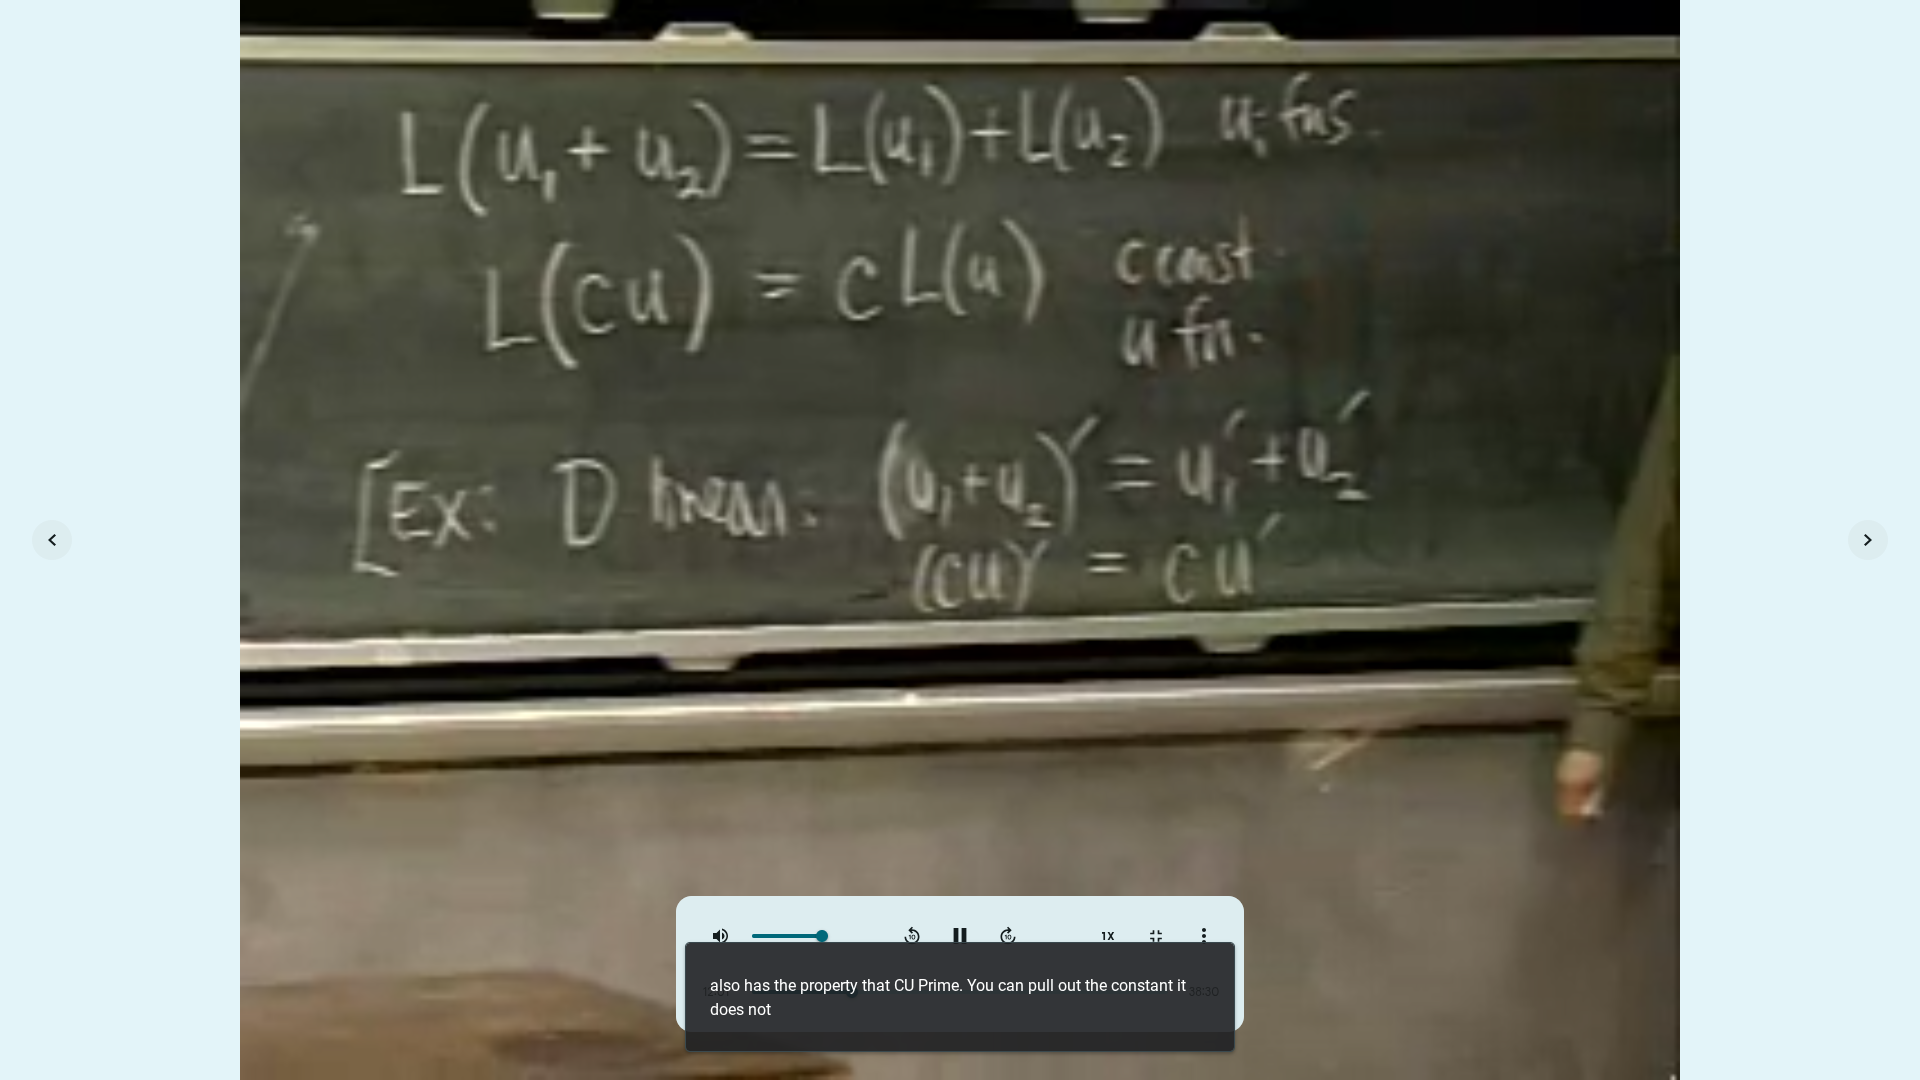 L(u₁ + u₂) = L(u₁) + L(u₂) uᵢ fns.
L(cu) = c L(u) c const
u fn.
[Ex: D linear. (u₁+u₂)′ = u₁′ + u₂′
(cu)′ = cu′
1X
also has the property that CU Prime. You can pull out the constant it
does not
38:30